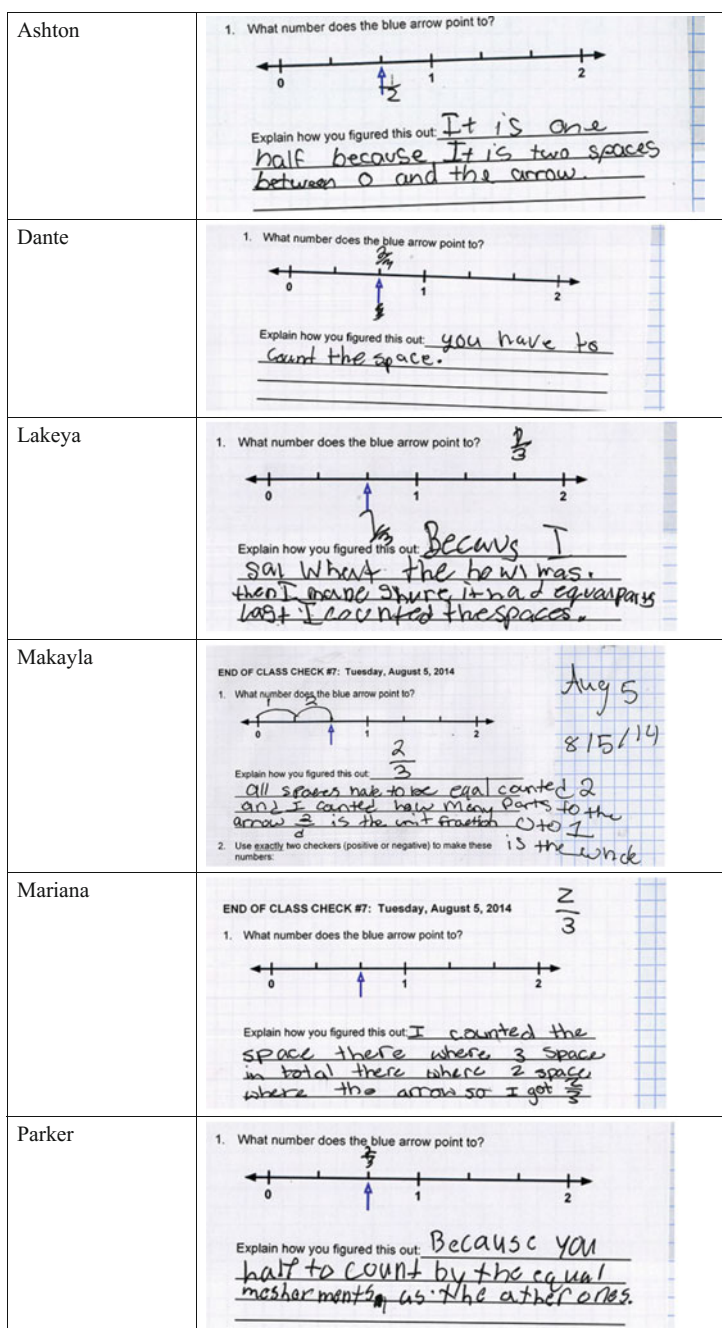 Ashton
1. What number does the blue arrow point to?
0
1
2
1/2
Explain how you figured this out: It is one
half because It is two spaces
between 0 and the arrow.
Dante
1. What number does the blue arrow point to?
0
1
2
Explain how you figured this out: you have to
count the space.
Lakeya
1. What number does the blue arrow point to?
2/3
0
1
2
Explain how you figured this out: Becaus I
sai what the howl mas.
then I mane shure it had equal parts
last I counted the spaces.
Makayla
END OF CLASS CHECK #7: Tuesday, August 5, 2014
Aug 5
1. What number does the blue arrow point to?
1 2
0
1
2
8/5/14
2/3
Explain how you figured this out:
all spaces have to be eqal canted 2
and I canted how many parts to the
arrow is the unit fraction 0 to 1
is the whole
2. Use exactly two checkers (positive or negative) to make these
numbers:
Mariana
END OF CLASS CHECK #7: Tuesday, August 5, 2014
2/3
1. What number does the blue arrow point to?
0
1
2
Explain how you figured this out: I counted the
space there where 3 space
in total there where 2 space
where the arrow so I got 2/3
Parker
1. What number does the blue arrow point to?
2/3
0
1
2
Explain how you figured this out: Because you
haft to count by the equal
mesherments, as the other ones.